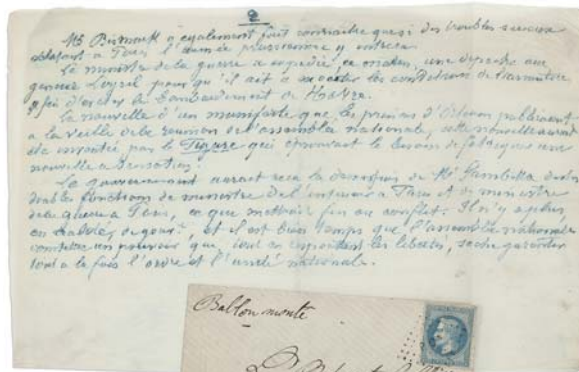 2
Mr Bismark a également fait connaitre que si des troubles sérieux
éclataient à Paris l'armée prussienne y entrera
Le ministre de la guerre a expédié, ce matin, une dépeche au
general Loysel pour qu'il ait a executer les conditions de l'armistice
afin d'éviter le bombardement du Havre.
La nouvelle d'un manifeste que les princes d'Orléans publieraient
a la veille de la reunion de l'assemblée nationale, cette nouvelle aurait
été inventée par le Figaro qui éprouvait le besoin de fabriquer une
nouvelle a sensation.
Le gouvernement aurait reçu la démission de Mr Gambetta de ses
doubles fonctions de ministre de l'interieur à Paris et de ministre
de la guerre a Paris, ce que mettrait fin au conflit. Il n'y a plus,
en et il est bien temps que l'assemblée nationale
constitue un pouvoir que, tout en respectant les libertés, sache garantir
tout a la fois l'ordre et l'unité nationale.
Ballon monté